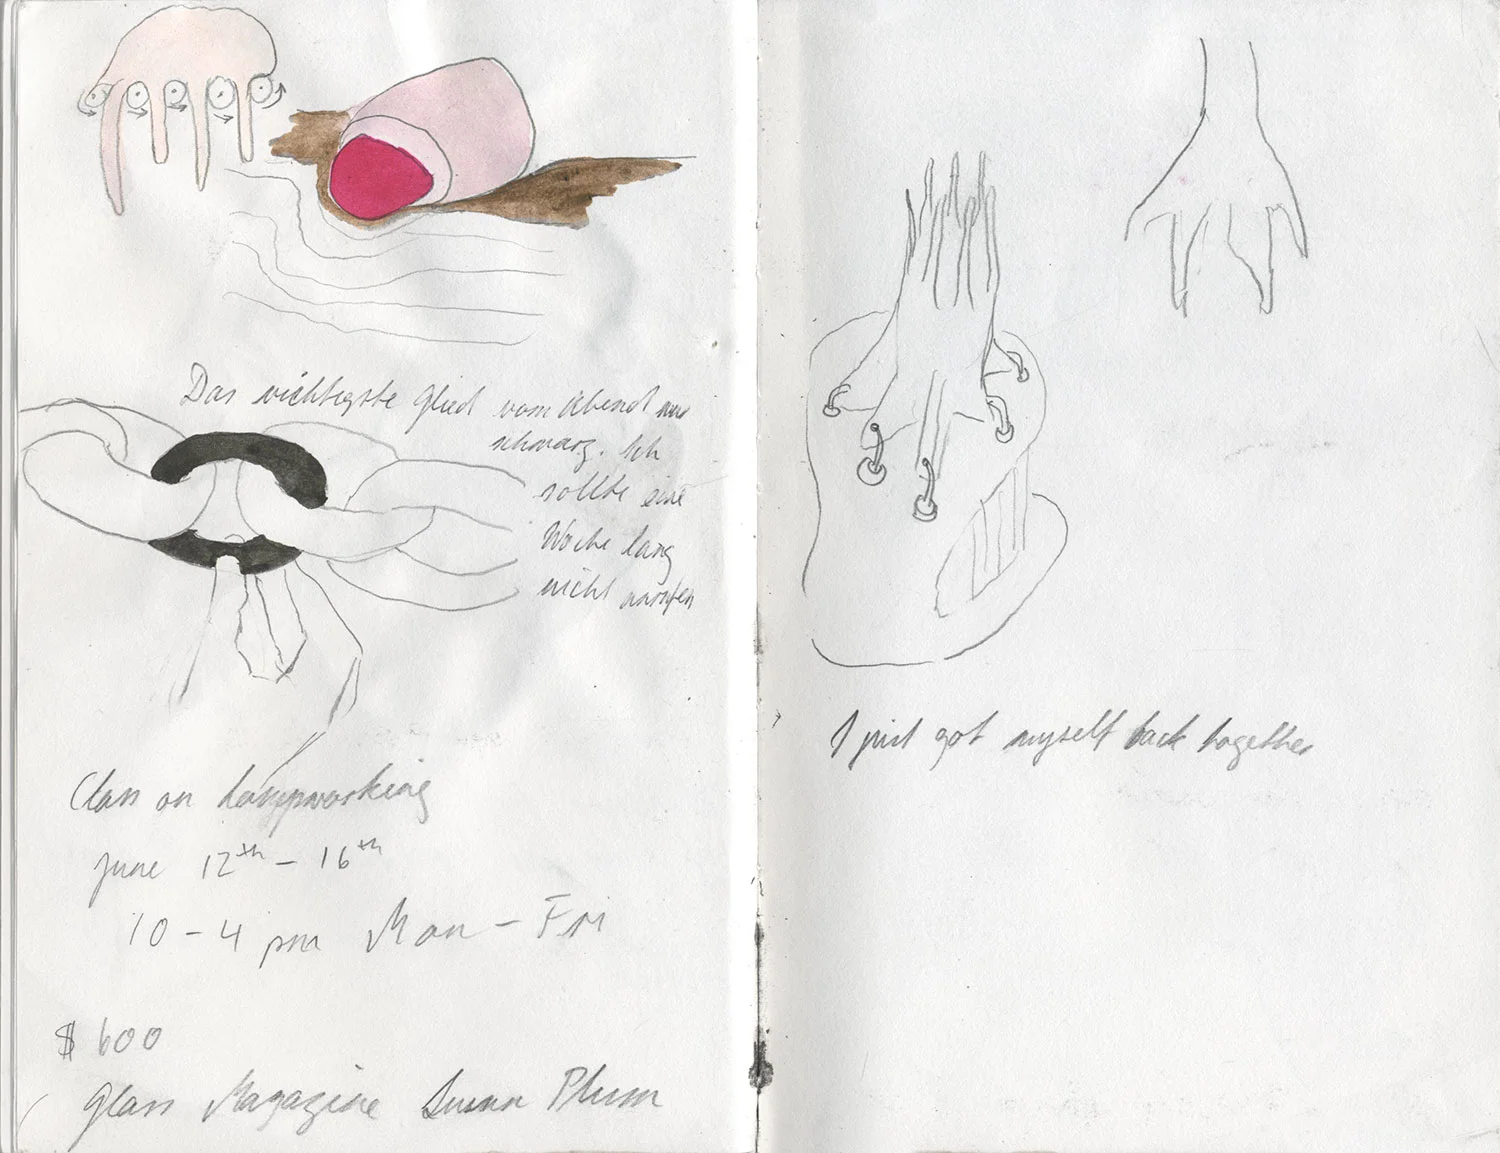 Das wichtigste Glied vom Abend war
schwarz. Ich
sollte eine
Woche lang
nicht anrufen
Class on Lampworking
June 12th – 16th
10 – 4 pm Mon – Fri
$ 600
Glass Magazine Susan Plum
I just got myself back together